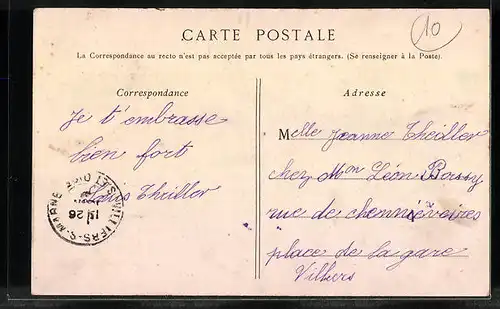 10
CARTE POSTALE
La Correspondance au recto n'est pas acceptée par tous les pays étrangers. (Se renseigner à la Poste).
Correspondance
Je t'embrasse
bien fort
Louis Theillor
VILLIERS-S-MARNE
SEINE ET OISE
26
Adresse
Melle Jeanne Theillor
chez Mon Léon Boussy
rue de chennievières
place de la gare
Villiers